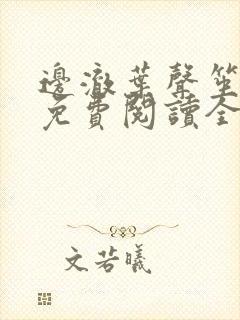 邊澈葉聲笙
免費閱讀全
文若曦